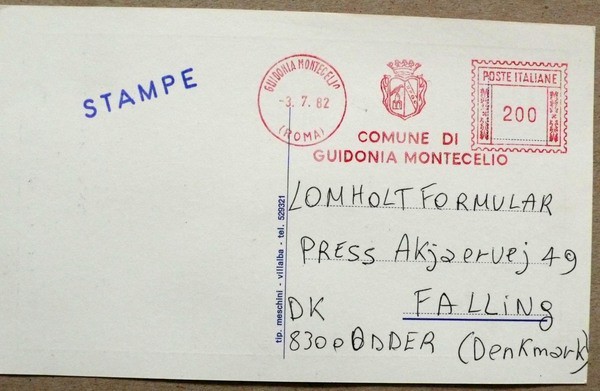 STAMPE
GUIDONIA MONTECELIO
-3.7.82
(ROMA)
POSTE ITALIANE
200
COMUNE DI
GUIDONIA MONTECELIO
tip. meschini - villalba - tel. 529321
LOMHOLT FORMULAR
PRESS Akjaervej 49
DK FALLING
8300 ODDER (Denkmark)